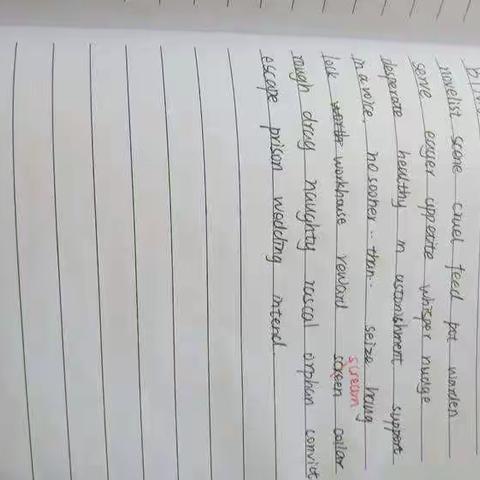 novelist scene cruel feed pot warden
serve eager appetite whisper nudge
desperate healthy in astonishment support
in a voice, no sooner... than... seize hang
scream
lock worth workhouse reward screen collar
rough drag naughty rascal orphan convict
escape prison wedding intend